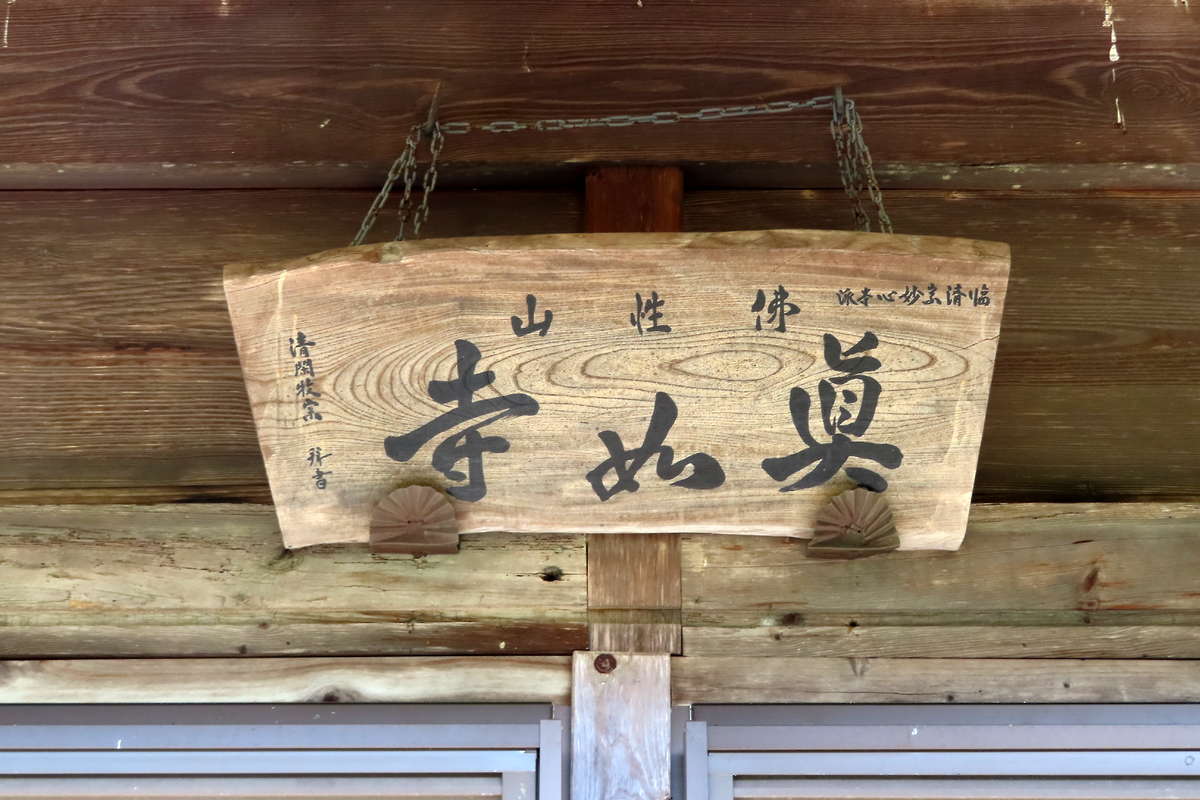 臨済宗妙心寺派
佛性山
眞如寺
清閑牧宗 拜書